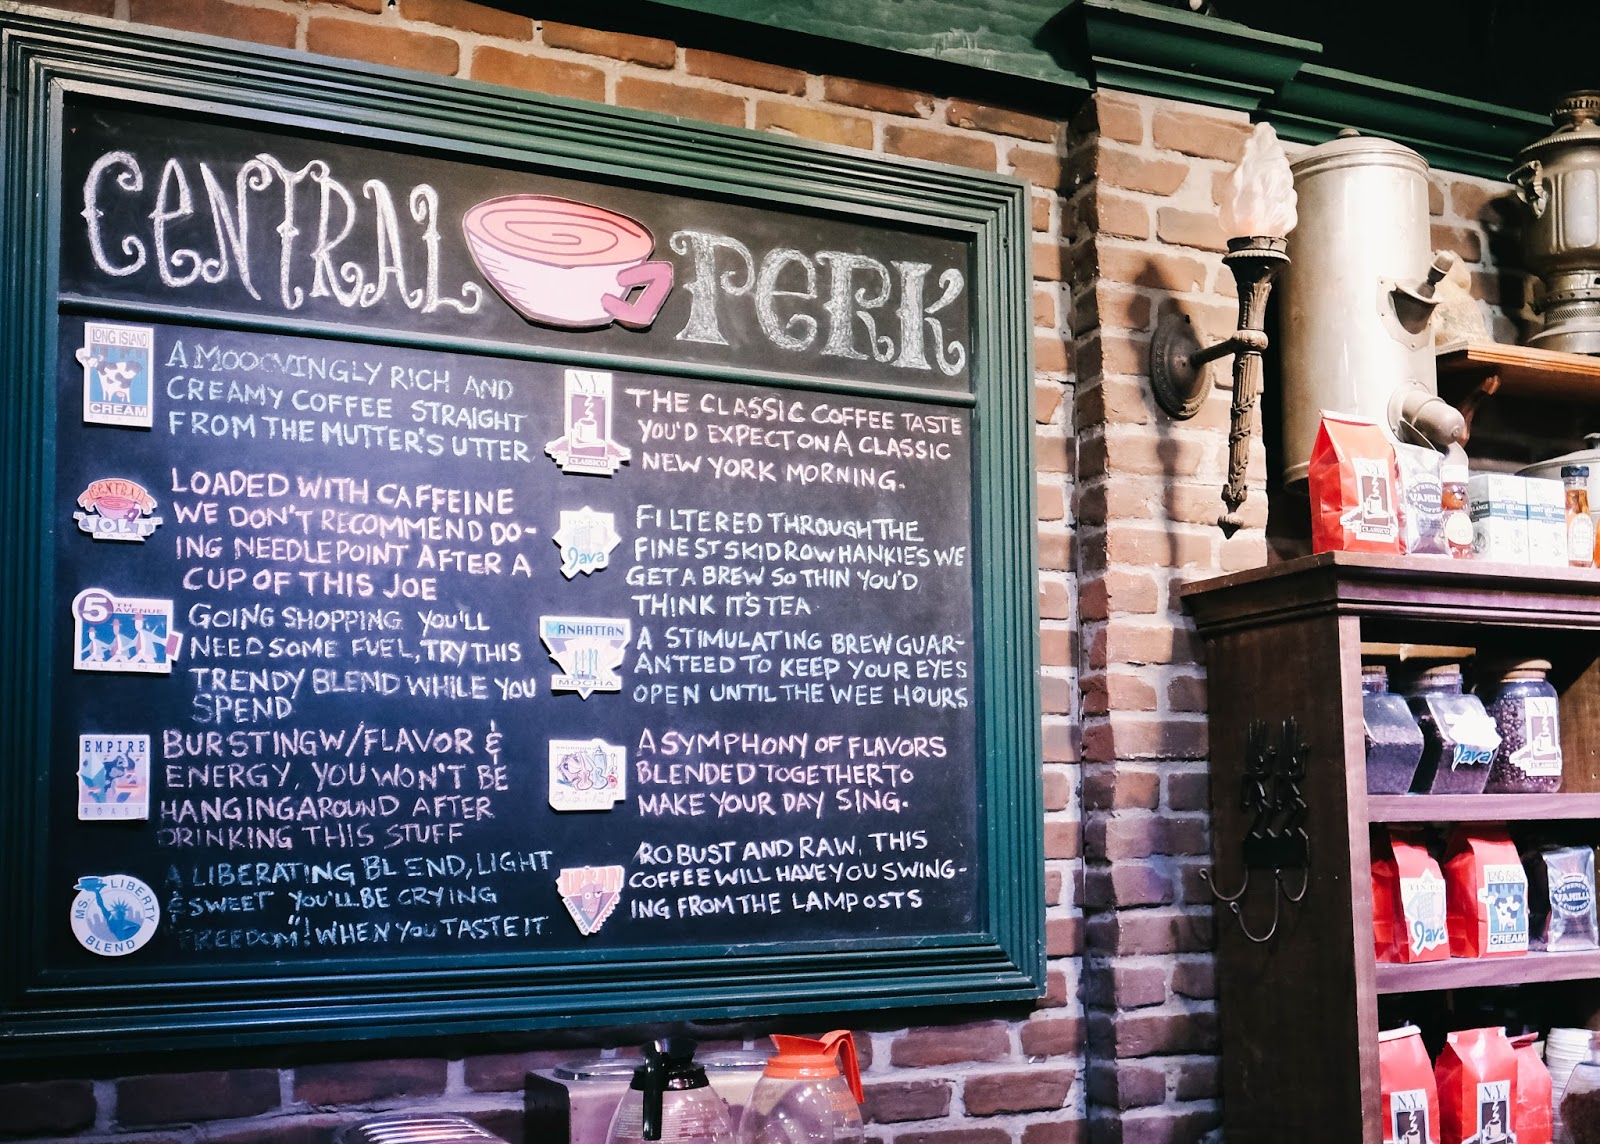 CENTRAL PERK
LONG ISLAND
CREAM
A MOOOVINGLY RICH AND
CREAMY COFFEE STRAIGHT
FROM THE MUTTER'S UTTER
CENTRAL
JOLT
JAVA
LOADED WITH CAFFEINE
WE DON'T RECOMMEND DO-
ING NEEDLEPOINT AFTER A
CUP OF THIS JOE
5TH AVENUE
BLEND
GOING SHOPPING YOU'LL
NEED SOME FUEL, TRY THIS
TRENDY BLEND WHILE YOU
SPEND
EMPIRE
ROAST
BURSTING W/FLAVOR &
ENERGY, YOU WON'T BE
HANGING AROUND AFTER
DRINKING THIS STUFF
MS. LIBERTY
BLEND
A LIBERATING BLEND, LIGHT
& SWEET YOU'LL BE CRYING
"FREEDOM"! WHEN YOU TASTE IT.
N.Y.
CLASSICO
THE CLASSIC COFFEE TASTE
YOU'D EXPECT ON A CLASSIC
NEW YORK MORNING.
Java
FILTERED THROUGH THE
FINEST SKID ROW HANKIES WE
GET A BREW SO THIN YOU'D
THINK IT'S TEA
MANHATTAN
MOCHA
A STIMULATING BREW GUAR-
ANTEED TO KEEP YOUR EYES
OPEN UNTIL THE WEE HOURS
A SYMPHONY OF FLAVORS
BLENDED TOGETHER TO
MAKE YOUR DAY SING.
URBAN
ROBUST AND RAW, THIS
COFFEE WILL HAVE YOU SWING-
ING FROM THE LAMPOSTS
N.Y.
CLASSICO
VANILLA
Java
N.Y.
CLASSICO
Java
LONG ISLAND
CREAM
VANILLA
N.Y.
N.Y.